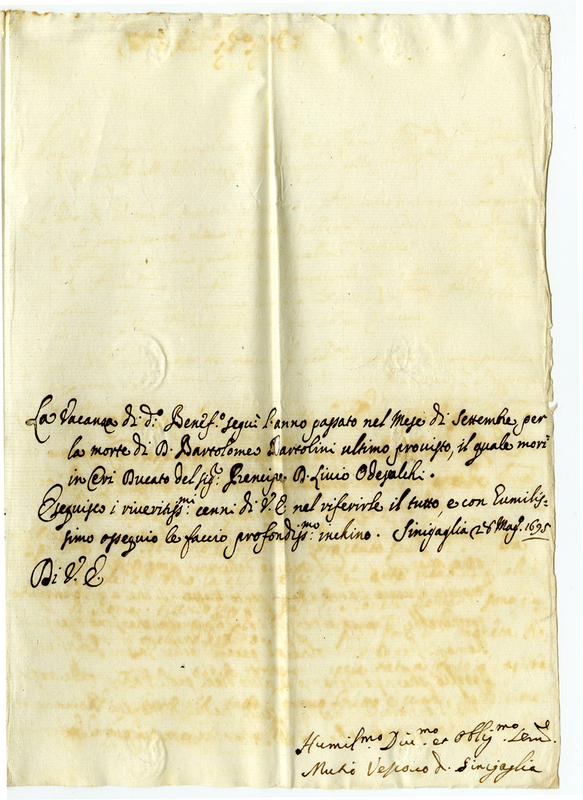 La Vacanza di d.º Benef.º seguì l'anno passato nel Mese di Settembre, per
la morte di D. Bartolomeo Bartolini ultimo provisto, il quale morì
in Ceri Ducato del sig.r Prencipe D. Livio Odescalchi.
Eseguisco i riveritiss.mi cenni di V. E. nel riferirle il tutto, e con humilis-
simo ossequio le faccio profondiss.mo inchino. Sinigaglia 26 Mag.º 1695
Di V. E.
Humil.mo Div.mo et Obblig.mo Ser.
Mutio Vescovo di Sinigaglia